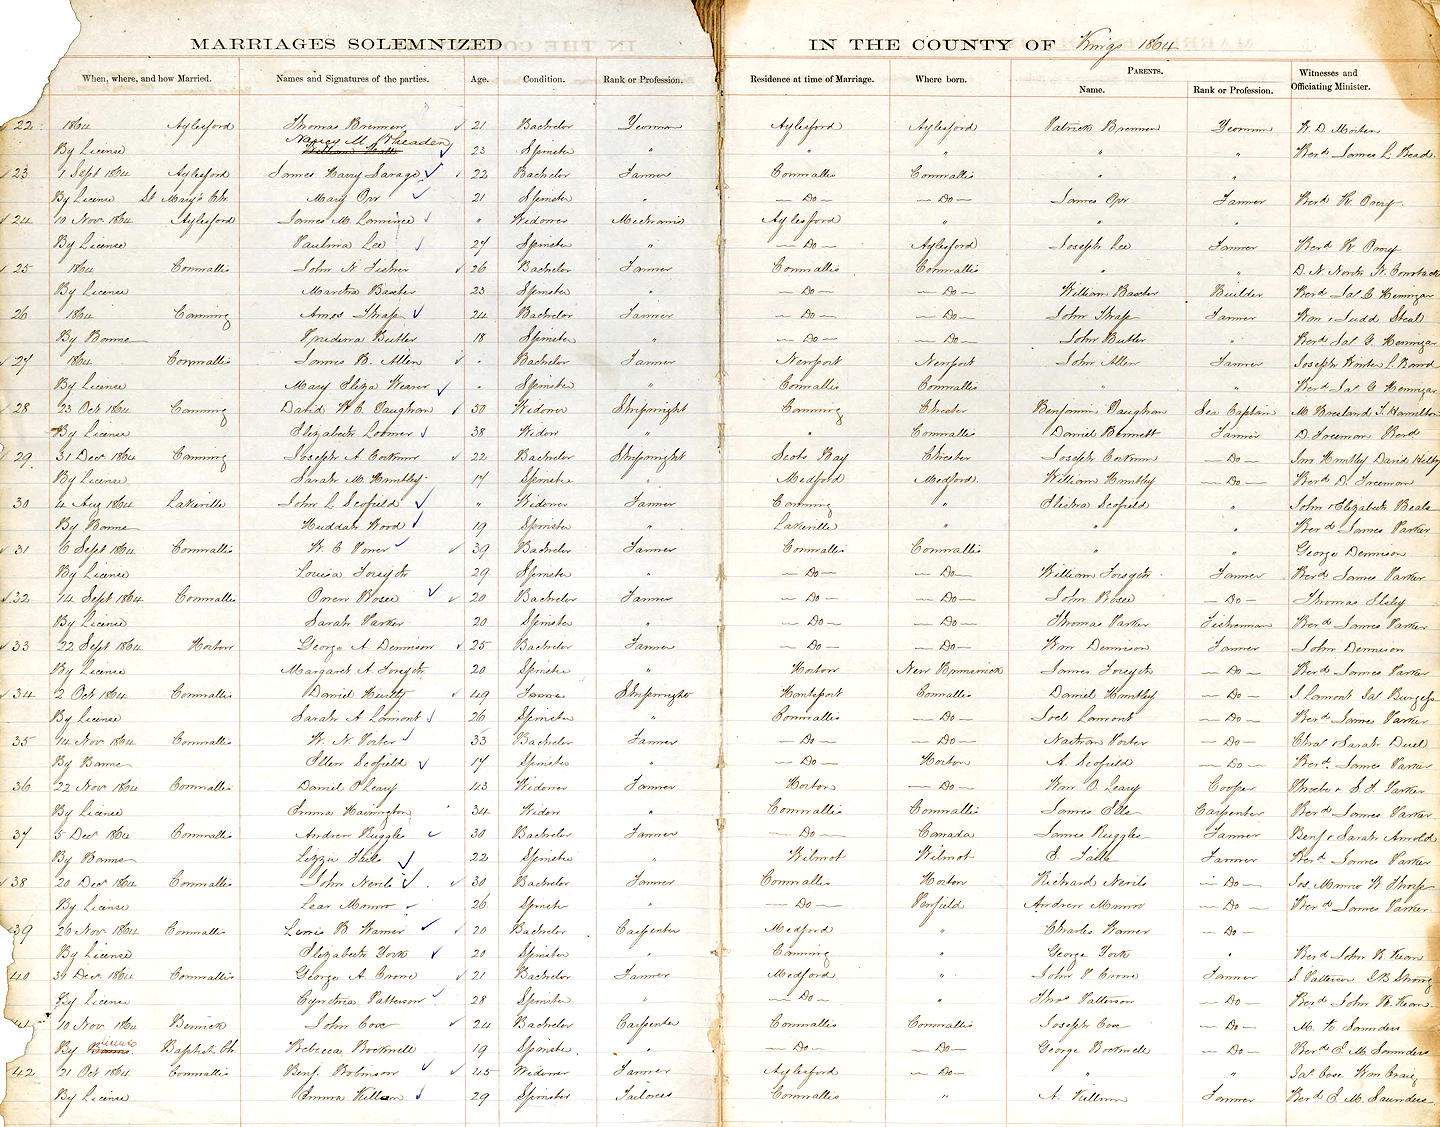 MARRIAGES SOLEMNIZED IN THE COUNTY OF Kings 1864
When, where, and how Married. Names and Signatures of the parties. Age. Condition. Rank or Profession. Residence at time of Marriage. Where born. PARENTS. Name. Rank or Profession. Witnesses and Officiating Minister.
22 1864 Aylesford Thomas Brennan 21 Bachelor Yeoman Aylesford Aylesford Patrick Brennan Yeoman W. D. Morton
By License Nancy M. 23 Spinster " " " " " Revd James L Read
23 1 Sept 1864 Aylesford James Harry Savage 22 Bachelor Farmer Cornwallis Cornwallis " "
By License St Mary's Ch. Mary Orr 21 Spinster " Do Do James Orr Farmer Revd
24 10 Nov 1864 Aylesford James M. Lawrence " Widower Mechanic Aylesford " " "
By License Paulina Lee 27 Spinster " Do Aylesford Joseph Lee Farmer Revd
25 1864 Cornwallis John N Fisher 26 Bachelor Farmer Cornwallis Cornwallis " " D. N. North
By License Martha Baxter 23 Spinster " Do Do William Baxter Builder Revd Jas G Hennigar
26 1864 Canning Amos Tharp 24 Bachelor Farmer Do Do John Tharp Farmer Wm & Judd Steal
By Banns Butler 18 Spinster " Do Do John Butler " Revd Jas G Hennigar
27 1864 Cornwallis James B. Allen " Bachelor Farmer Newport Newport John Allen Farmer Joseph
By License Mary Eliza Weaver " Spinster " Cornwallis Cornwallis " " Revd Jas G Hennigar
28 23 Oct 1864 Canning David W. C. Vaughan 50 Widower Shipwright Canning Chester Benjamin Vaughan Sea Captain Hamilton
By License Elizabeth Loomer 38 Widow " " Cornwallis Daniel Bennett Farmer D. Freeman Revd
29 31 Decr 1864 Canning Joseph A Cochran 22 Bachelor Shipwright Scots Bay Chester Joseph Cochran Do Jno Huntley David
By License Sarah M. Huntley 17 Spinster " Medford Medford William Huntley Do Revd D. Freeman
30 4 Aug 1864 Lakeville John L Scofield " Widower Farmer Canning " Scofield " John & Elizabeth Beals
By Banns Huddah Wood 19 Spinster " Lakeville " " " Revd James Parker
31 6 Sept 1864 Cornwallis W. C. 39 Bachelor Farmer Cornwallis Cornwallis " " George Dennison
By License Louisa Forsyth 29 Spinster " Do Do William Forsyth Farmer Revd James Parker
32 14 Sept 1864 Cornwallis Oren 20 Bachelor Farmer Do Do John Do Thomas
By License Sarah Parker 20 Spinster " Do Do Thomas Parker Fisherman Revd James Parker
33 22 Sept 1864 Horton George A Dennison 25 Bachelor Farmer Do Do Wm Dennison Farmer John Dennison
By License Margaret A Forsyth 20 Spinster " Horton New Brunswick James Forsyth Do Revd James Parker
34 2 Oct 1864 Cornwallis Daniel Huntly 49 Shipwright Hantsport Cornwallis Daniel Huntley Do J Lamont Jas Burgess
By License Sarah A Lamont 26 Spinster " Cornwallis Do Joel Lamont Do Revd James Parker
35 14 Nov 1864 Cornwallis W. N. Porter 33 Bachelor Farmer Do Do Nathan Porter Do Chas & Sarah
By Banns Ellen Scofield 17 Spinster " Do Horton A Scofield Do Revd James Parker
36 22 Nov 1864 Cornwallis Daniel OLeary 43 Widower Farmer Horton Do Wm O. Leary Cooper Phoebe & S. J. Parker
By License Emma Harrington 34 Widow " Cornwallis Cornwallis James Ells Carpenter Revd James Parker
37 5 Decr 1864 Cornwallis Andrew Ruggles 30 Bachelor Farmer Do Canada James Ruggles Farmer Benj & Sarah Arnold
By Banns Lizzie 22 Spinster " Wilmot Wilmot E. Farmer Revd James Parker
38 20 Decr 1864 Cornwallis John Nevils 30 Bachelor Farmer Cornwallis Horton Richard Nevils Do Jos. Munro W Tharp
By License Leah Munro 26 Spinster " Do Andrew Munro Do Revd James Parker
39 26 Nov 1864 Cornwallis Lewis B Warner 20 Bachelor Carpenter Medford " Charles Warner Do
By License Elizabeth York 20 Spinster " Canning " George York " Revd John B
40 31 Decr 1864 Cornwallis George A Crone 21 Bachelor Farmer Medford " John P Crone Farmer J Patterson J B Strong
By License Cynthia Patterson 28 Spinster " Do " Thos Patterson Do Revd John B
41 10 Nov 1864 Berwick John Cox 24 Bachelor Carpenter Cornwallis Cornwallis Joseph Cox Do Saunders
By Banns License Baptist Ch. Rebecca Rockwell 19 Spinster " Do Do George Rockwell Do Revd E. M. Saunders
42 21 Oct 1864 Cornwallis Benj. Robinson 45 Widower Farmer Aylesford Do " " Jas Cox Wm Craig
By License Emma Killam 29 Spinster Tailoress Cornwallis " A. Killam Farmer Revd E. M. Saunders